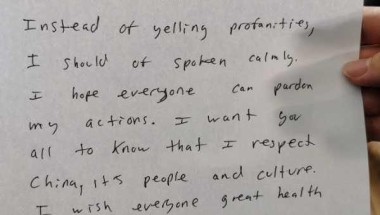 Instead of yelling profanities,
I should of spoken calmly.
I hope everyone can pardon
my actions. I want you
all to know that I respect
China, its people and culture.
I wish everyone great health